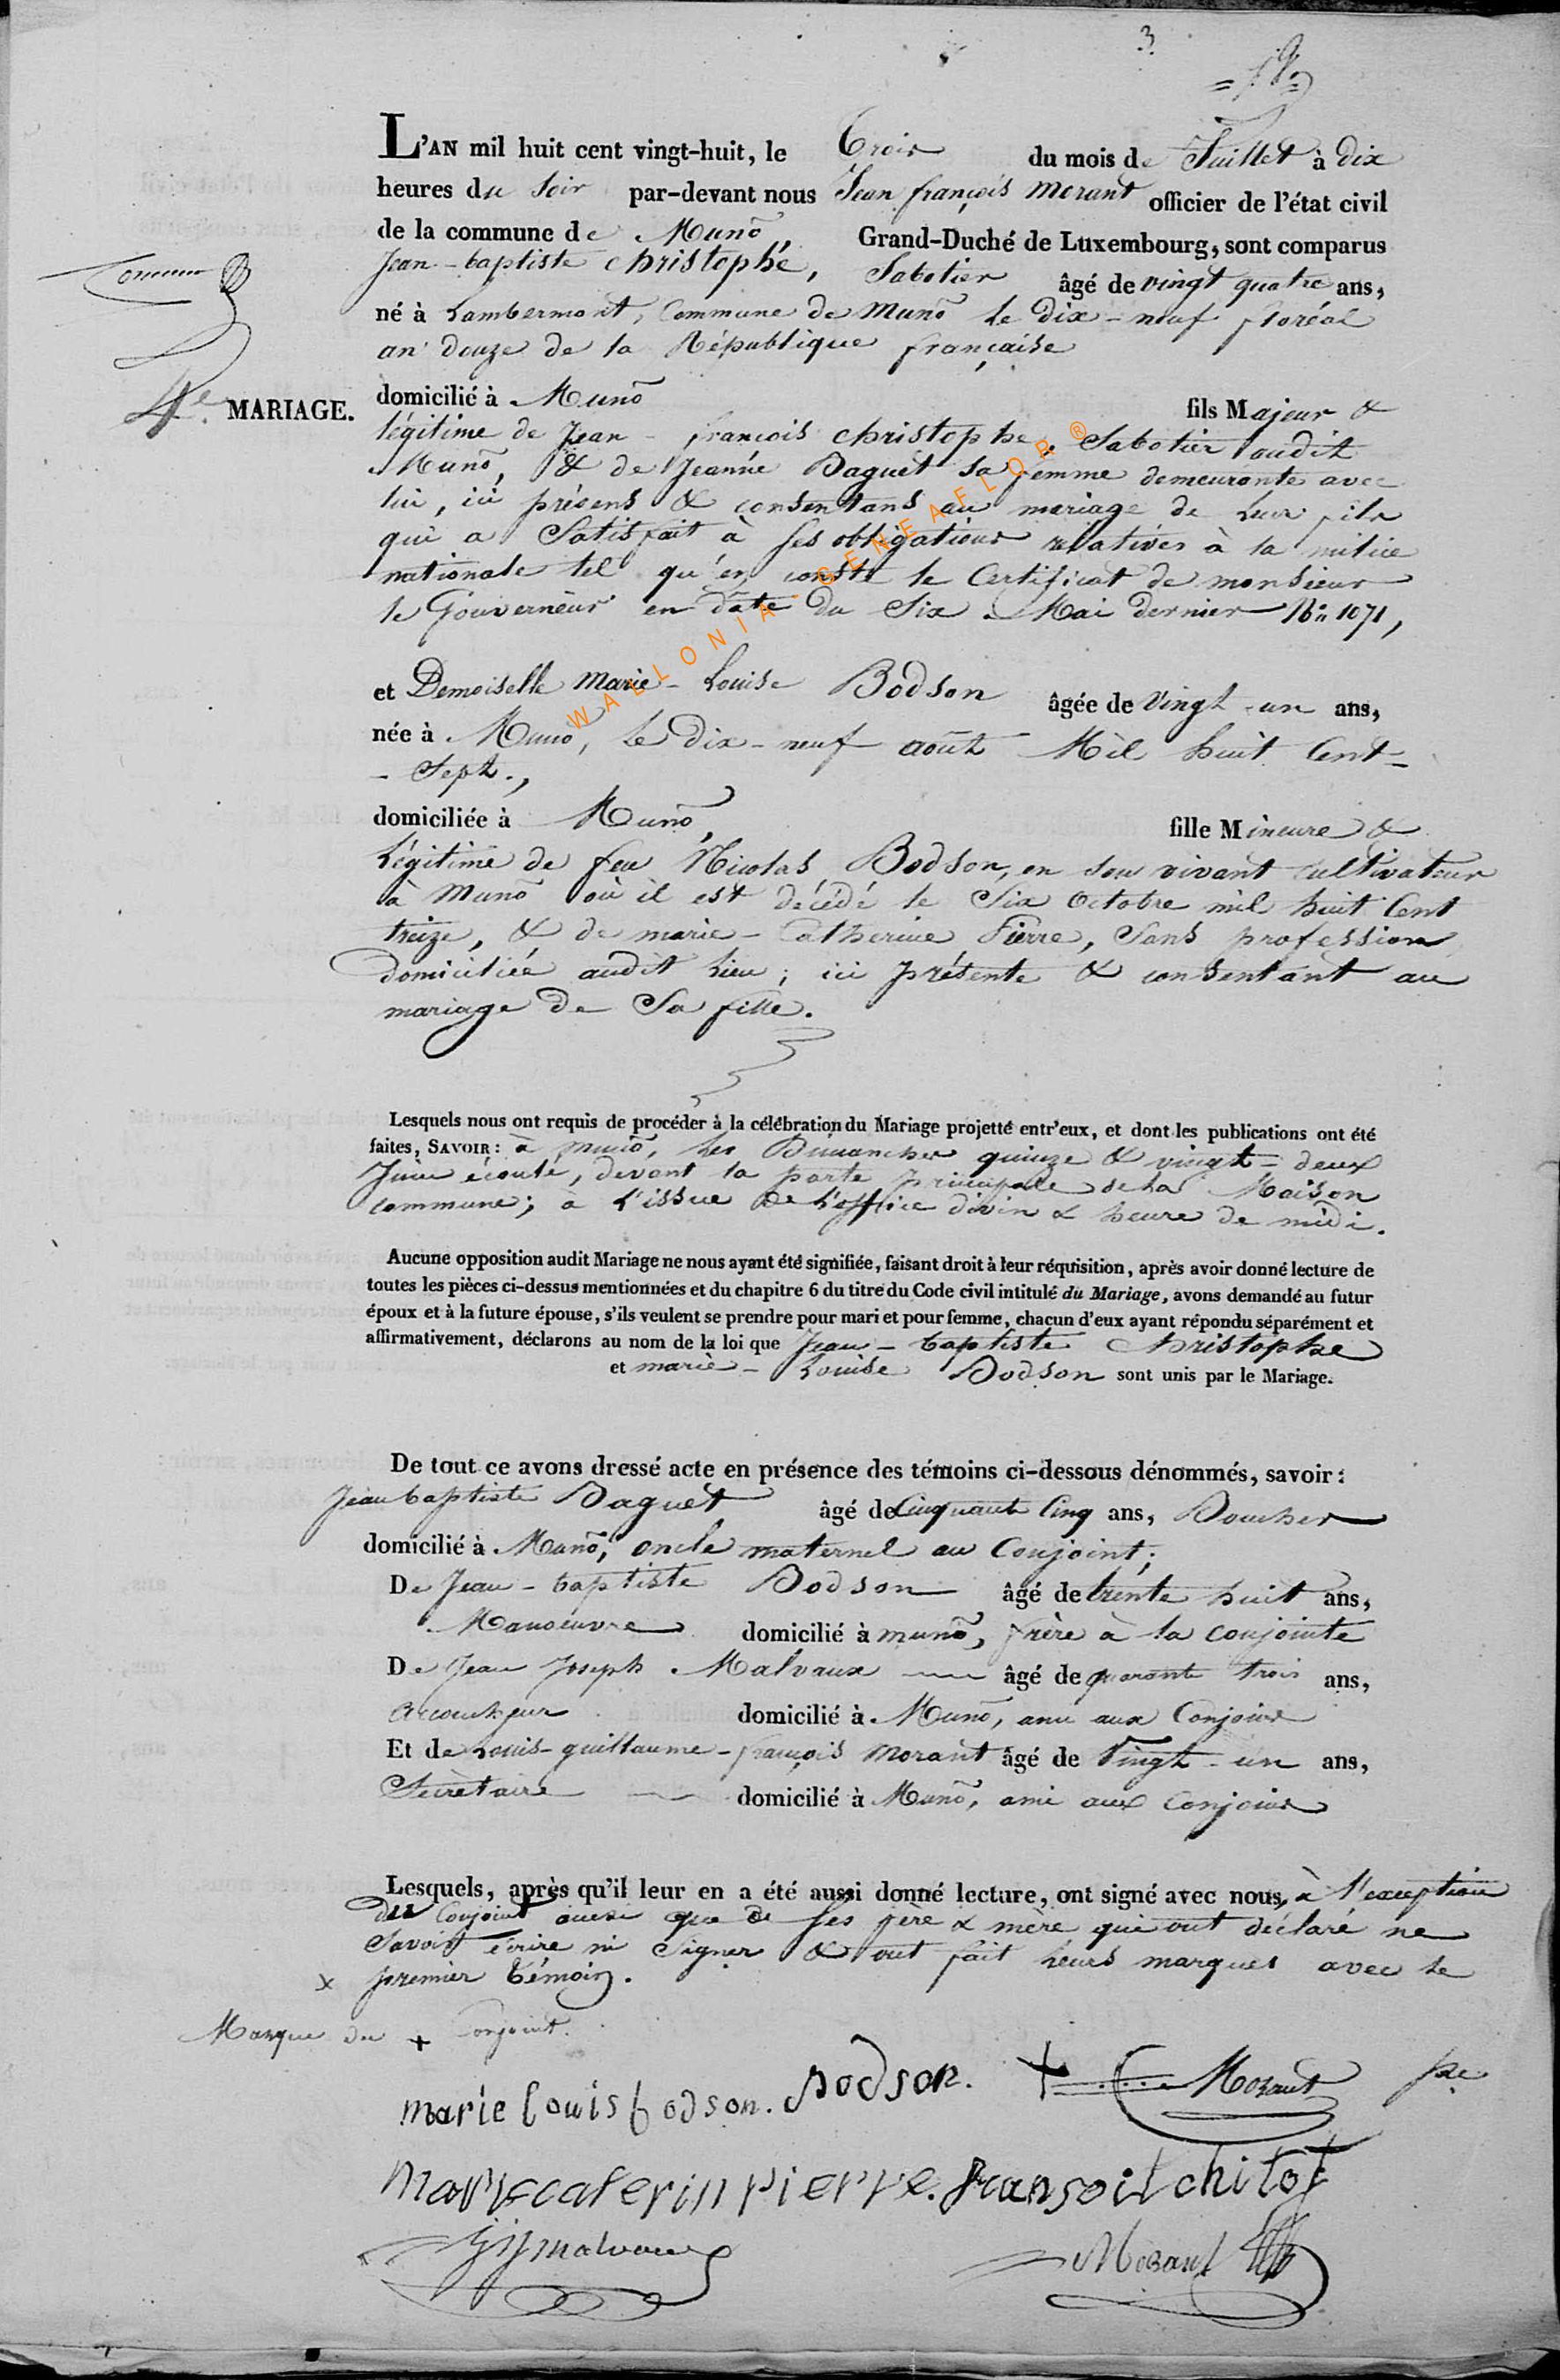 3
L'AN mil huit cent vingt-huit, le Trois du mois de Juillet à dix
heures du soir par-devant nous Jean françois Morant officier de l'état civil
de la commune de Muno, Grand-Duché de Luxembourg, sont comparus
Jean-baptiste christophe, Sabotier âgé de vingt quatre ans,
né à Lambermont, Commune de Muno le dix-neuf floréal
an douze de la République française
4e. MARIAGE.
domicilié à Muno fils Majeur &
légitime de Jean-françois christophe, Sabotier audit
Muno, & de Jeanne Baguet sa femme demeurante avec
lui, ici présens & consentans au mariage de leur fils
qui a Satisfait à ses obligations relatives à la milice
nationale tel qu'en conste le Certificat de monsieur
le Gouverneur en date du Six Mai dernier No 1071,
et Demoiselle marie-Louise Bodson âgée de Vingt-un ans,
née à Muno, le Dix-neuf août Mil huit Cent-
-Sept.,
domiciliée à Muno, fille Mineure &
Légitime de feu Nicolas Bodson, en son vivant cultivateur
à Muno où il est décédé le Six Octobre mil huit Cent
treize, & de marie-Catherine Pierre, Sans profession
domiciliée audit Lieu; ici présente & consentant au
mariage de Sa fille.
Lesquels nous ont requis de procéder à la célébration du Mariage projetté entr'eux, et dont les publications ont été
faites, SAVOIR: à Muno, les Dimanches quinze & vingt-deux
Juin écoulé, devant la porte principale de la Maison
commune; à l'issue de l'office divin & heure de midi.
Aucune opposition audit Mariage ne nous ayant été signifiée, faisant droit à leur réquisition, après avoir donné lecture de
toutes les pièces ci-dessus mentionnées et du chapitre 6 du titre du Code civil intitulé du Mariage, avons demandé au futur
époux et à la future épouse, s'ils veulent se prendre pour mari et pour femme, chacun d'eux ayant répondu séparément et
affirmativement, déclarons au nom de la loi que Jean-baptiste Christophe
et marie-Louise Bodson sont unis par le Mariage.
De tout ce avons dressé acte en présence des témoins ci-dessous dénommés, savoir:
Jean baptiste Baguet âgé de Cinquante Cinq ans, Boucher
domicilié à Muno, oncle maternel au Conjoint;
De Jean-baptiste Bodson âgé de trente huit ans,
Manoeuvre domicilié à muno, frère à la conjointe
De Jean Joseph Malvaux âgé de quarante trois ans,
accoucheur domicilié à Muno, ami aux Conjoins
Et de Louis-guillaume-françois Morant âgé de Vingt-un ans,
Secrétaire domicilié à Muno, ami aux Conjoins
Lesquels, après qu'il leur en a été aussi donné lecture, ont signé avec nous, à l'exception
du Conjoint ainsi que de ses père & mère qui ont déclaré ne
Savoir écrire ni Signer & ont fait leurs marques avec le
x premier témoin.
Marque du + Conjoint.
marie louis bodson. Bodson. + Morant
Marie caterin pierre.
JJ malvaux Morant
WALLONIA-GENEAFLOR ®